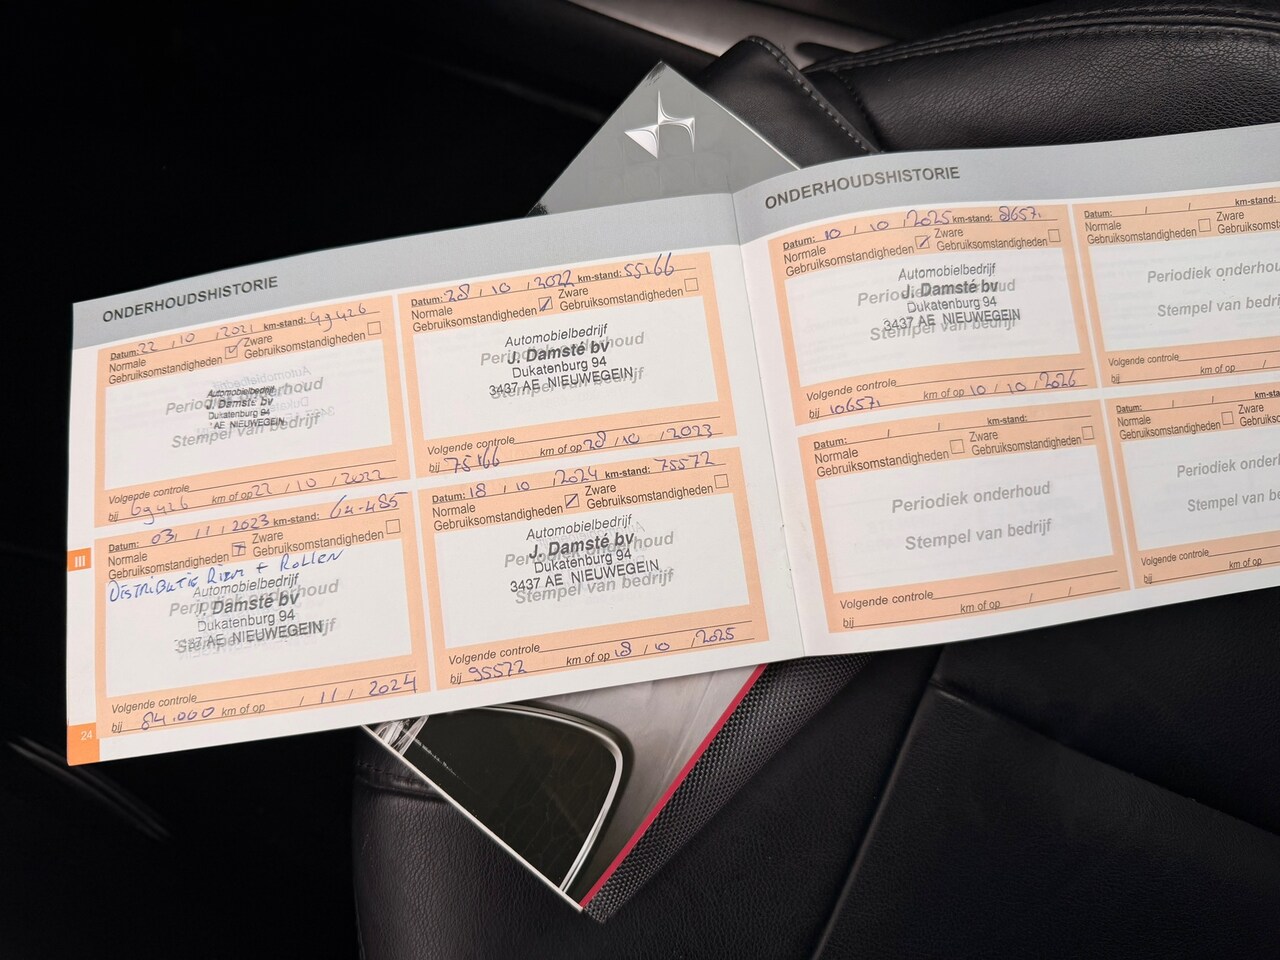 ONDERHOUDSHISTORIE
Datum: 22 / 10 / 2021 km-stand: 49426
Normale Gebruiksomstandigheden
Zware Gebruiksomstandigheden
Periodiek onderhoud
Stempel van bedrijf
Automobielbedrijf
J. Damsté bv
Dukatenburg 94
AE NIEUWEGEIN
Volgende controle
bij 69426 km of op 22 / 10 / 2022
Datum: 28 / 10 / 2022 km-stand: 55166
Normale Gebruiksomstandigheden
Zware Gebruiksomstandigheden
Periodiek onderhoud
Stempel van bedrijf
Automobielbedrijf
J. Damsté bv
Dukatenburg 94
3437 AE NIEUWEGEIN
Volgende controle
bij 75166 km of op 28 / 10 / 2023
Datum: 03 / 11 / 2023 km-stand: 64-485
Normale Gebruiksomstandigheden
Zware Gebruiksomstandigheden
DISTRIBUTIE RIEM + ROLLEN
Periodiek onderhoud
Stempel van bedrijf
Automobielbedrijf
J. Damsté bv
Dukatenburg 94
3437 AE NIEUWEGEIN
Volgende controle
bij 84.000 km of op / 11 / 2024
Datum: 18 / 10 / 2024 km-stand: 75572
Normale Gebruiksomstandigheden
Zware Gebruiksomstandigheden
Periodiek onderhoud
Stempel van bedrijf
Automobielbedrijf
J. Damsté bv
Dukatenburg 94
3437 AE NIEUWEGEIN
Volgende controle
bij 95572 km of op 18 / 10 / 2025
III
24
ONDERHOUDSHISTORIE
Datum: 10 / 10 / 2025 km-stand: 86571
Normale Gebruiksomstandigheden
Zware Gebruiksomstandigheden
Periodiek onderhoud
Stempel van bedrijf
Automobielbedrijf
J. Damsté bv
Dukatenburg 94
3437 AE NIEUWEGEIN
Volgende controle
bij 106571 km of op 10 / 10 / 2026
Datum: / / km-stand:
Normale Gebruiksomstandigheden
Zware Gebruiksomstandigheden
Periodiek onderhoud
Stempel van bedrijf
Volgende controle
bij km of op / /
Datum: / / km-stand:
Normale Gebruiksomstandigheden
Zware Gebruiksomst
Periodiek onderhou
Stempel van bedrijf
Volgende controle
bij km of op /
Datum: / / km-sta
Normale Gebruiksomstandigheden
Zware Gebruiksom
Periodiek onderh
Stempel van be
Volgende controle
bij km of op